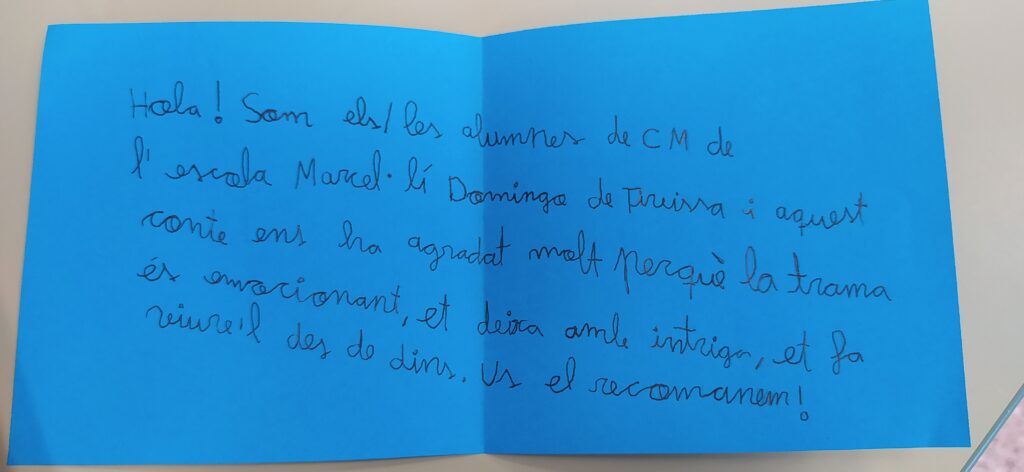 Hola! Som els/les alumnes de CM de
l'escola Marcel·lí Domingo de Tivissa i aquest
conte ens ha agradat molt perquè la trama
és emocionant, et deixa amb intriga, et fa
viure'l des de dins. Us el recomanem!